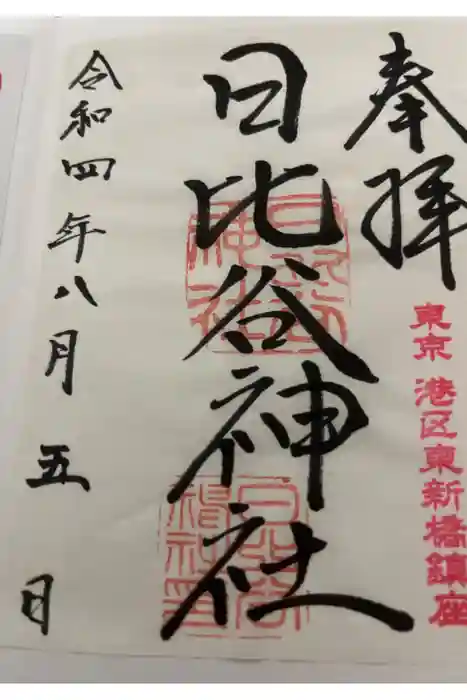 奉拝
東京 港区東新橋鎮座
日比谷神社
令和四年八月五日